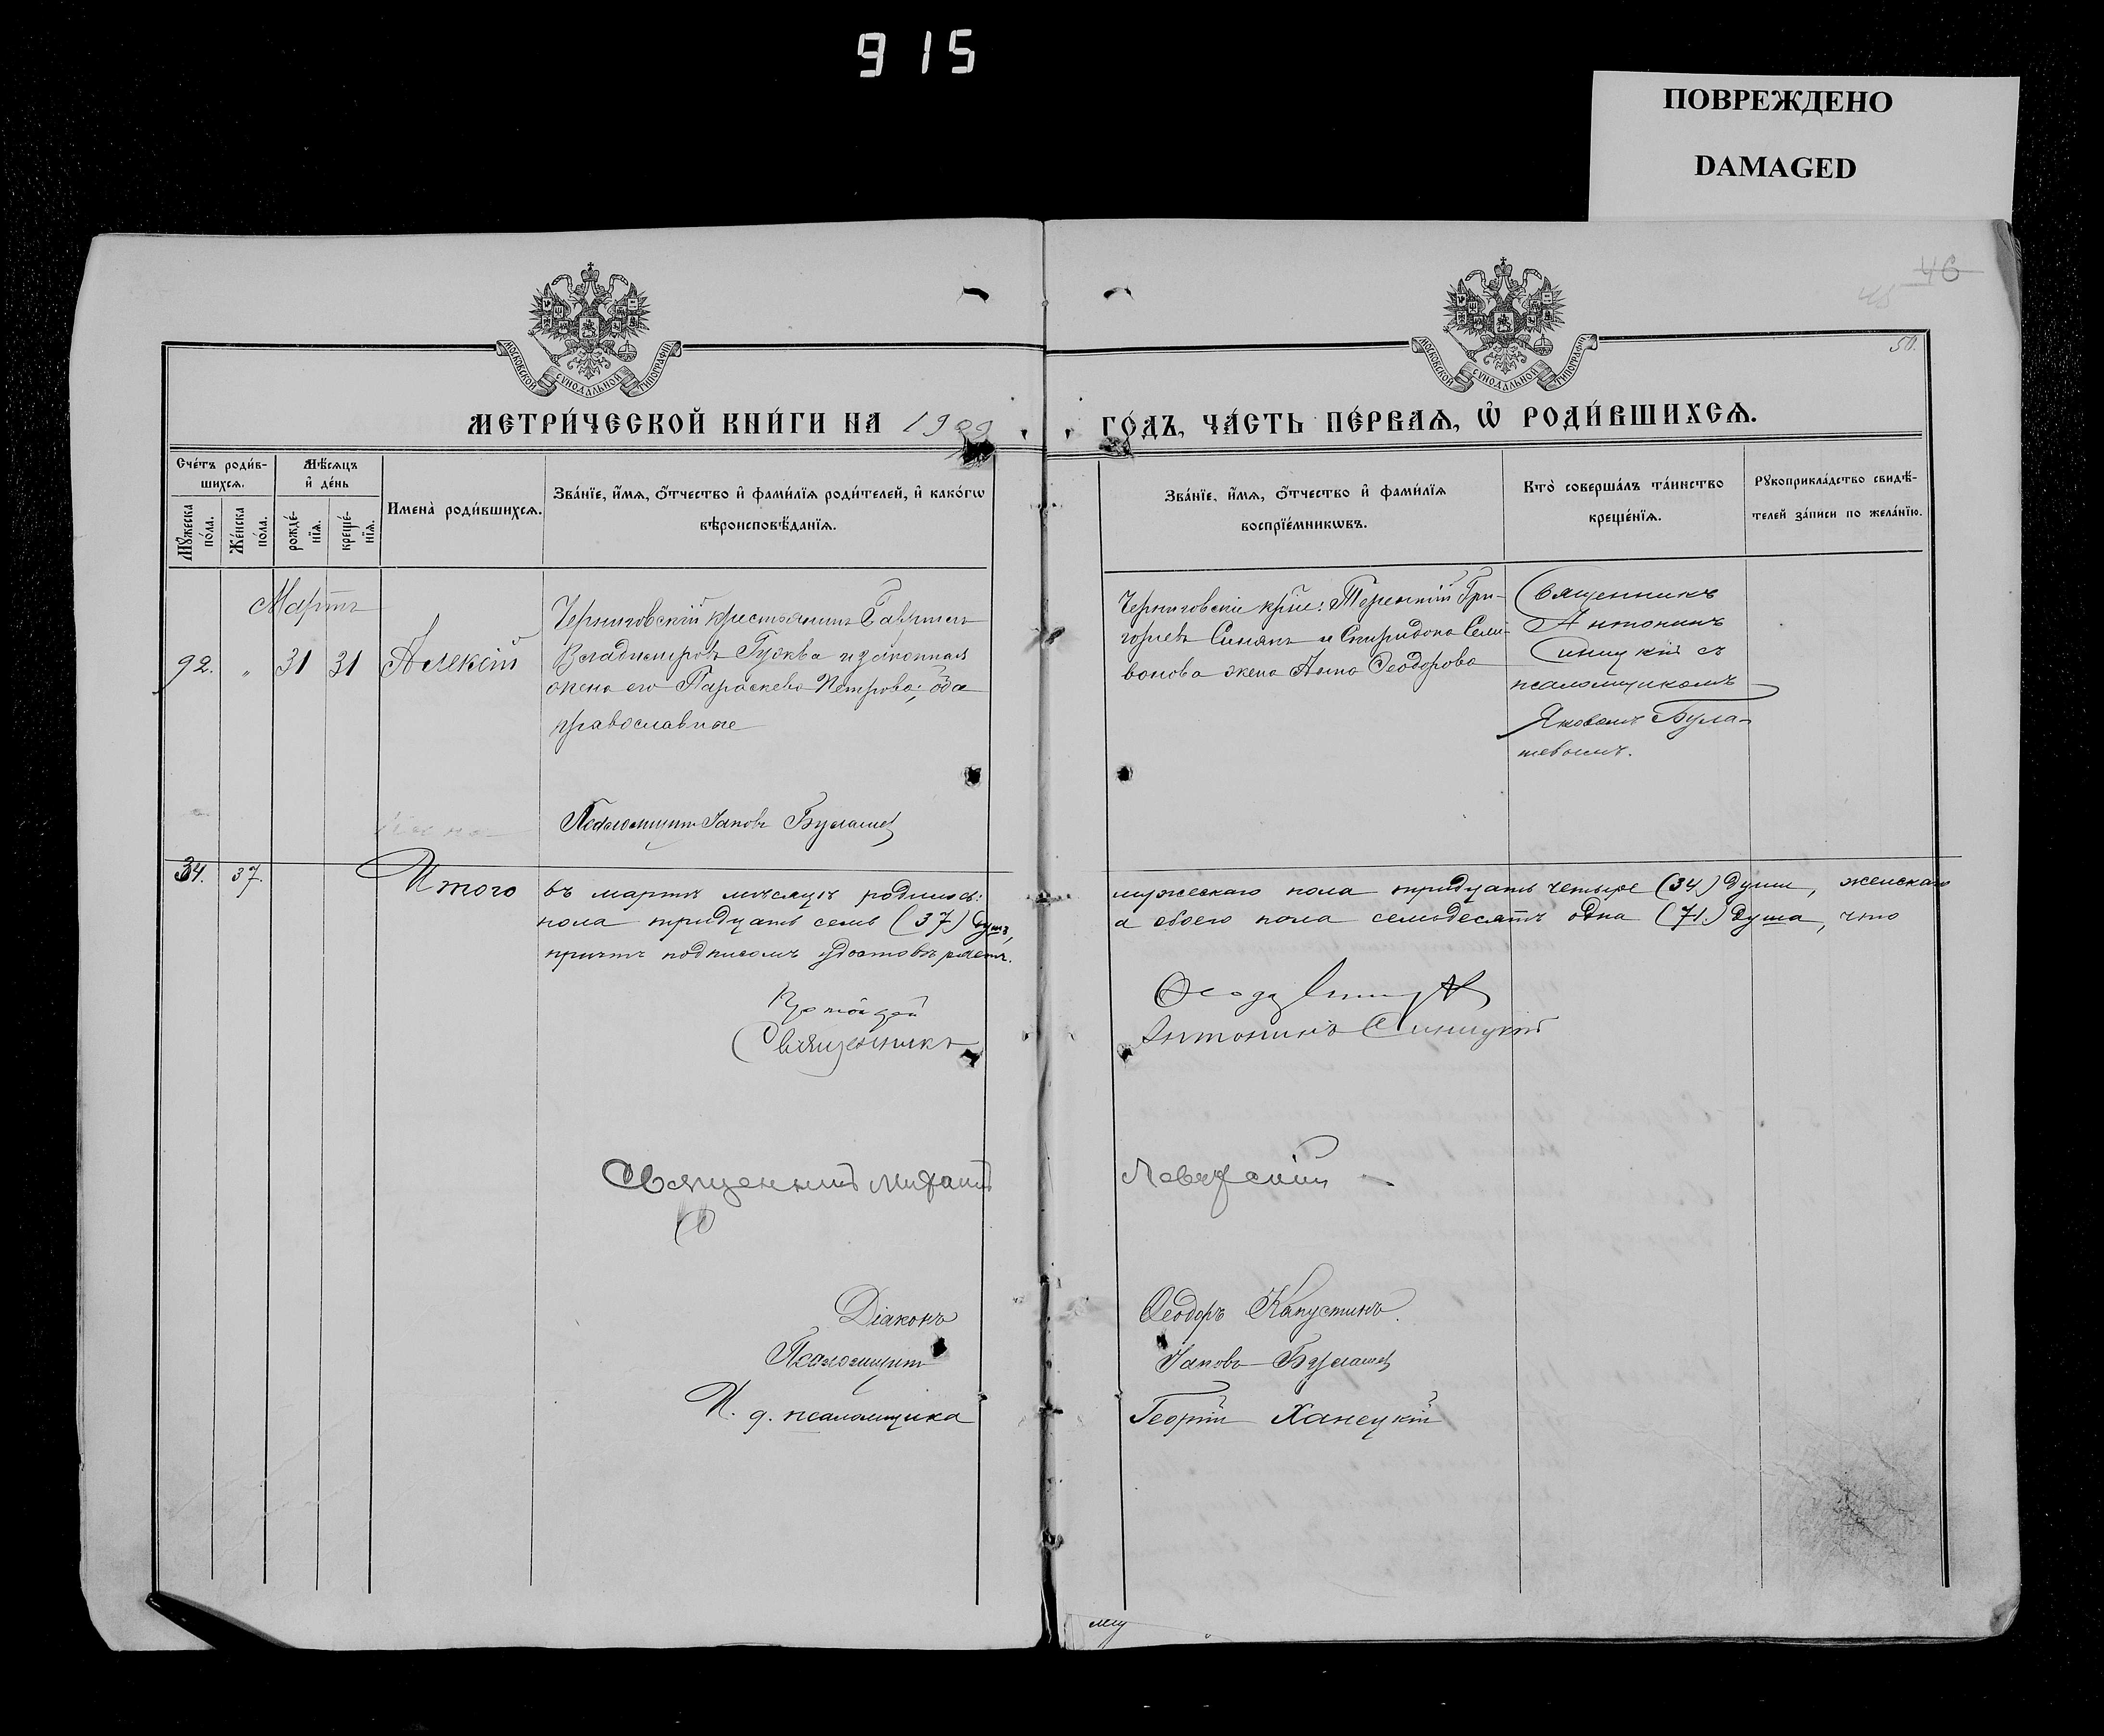 915
ПОВРЕЖДЕНО
DAMAGED
46
50.
МОСКОВСКОЙ СѴНОДАЛЬНОЙ ТИПОГРАФІИ
МОСКОВСКОЙ СѴНОДАЛЬНОЙ ТИПОГРАФІИ
МЕТРИ́ЧЕСКОЙ КНИ́ГИ НА 1909
ГО́ДЪ, ЧА́СТЬ ПЕ́РВАѦ, Ѡ҆ РОДИ́ВШИХСѦ.
Сче́тъ роди́в-
шихсѧ.
Мѣ́сѧцъ
и҆ де́нь
Мꙋ́жеска
по́ла.
Же́нска
по́ла.
рожде́-
нїѧ.
креще́-
нїѧ.
Имена̀ роди́вшихсѧ.
Зва́нїе, и҆́мѧ, ѻ҆́тчество и҆ фами́лїѧ роди́телей, и҆ како́гѡ
вѣроисповѣ́данїѧ.
Зва́нїе, и҆́мѧ, ѻ҆́тчество и҆ фами́лїѧ
воспрїе́мникѡвъ.
Кто̀ соверша́лъ та́инство
креще́нїѧ.
Рꙋкоприкла́дство свидѣ́-
телей за́писи по жела́нїю.
Мартъ
92. " 31 31 Алексій
Черниговскій крестьянинъ Гавріилъ
Владимировъ Гужва и законная
жена его Параскева Петрова; оба
православные
Псаломщикъ Іаковъ Булашев
Черниговскіе крест: Терентій Гри-
горьевъ Синякъ и Спиридона Сели-
ванова жена Анна Ѳеодорова
Священникъ
Антонинъ
Синицкій съ
псаломщикомъ
Яковомъ Була-
шевымъ.
34. 37. Итого въ мартѣ мѣсяцѣ родилось: мужескаго пола тридцать четыре (34) души, женскаго
пола тридцать семь (37) душъ, а обоего пола семьдесятъ одна (71) душа, что
причтъ подписомъ удостовѣряетъ.
Протоіерей
Священникъ Антонинъ Синицкій
Священникъ Михаилъ
Діаконъ Ѳеодоръ Капустинъ.
Псаломщикъ Іаковъ Булашев
И. д. псаломщика Георгій Ханецкій